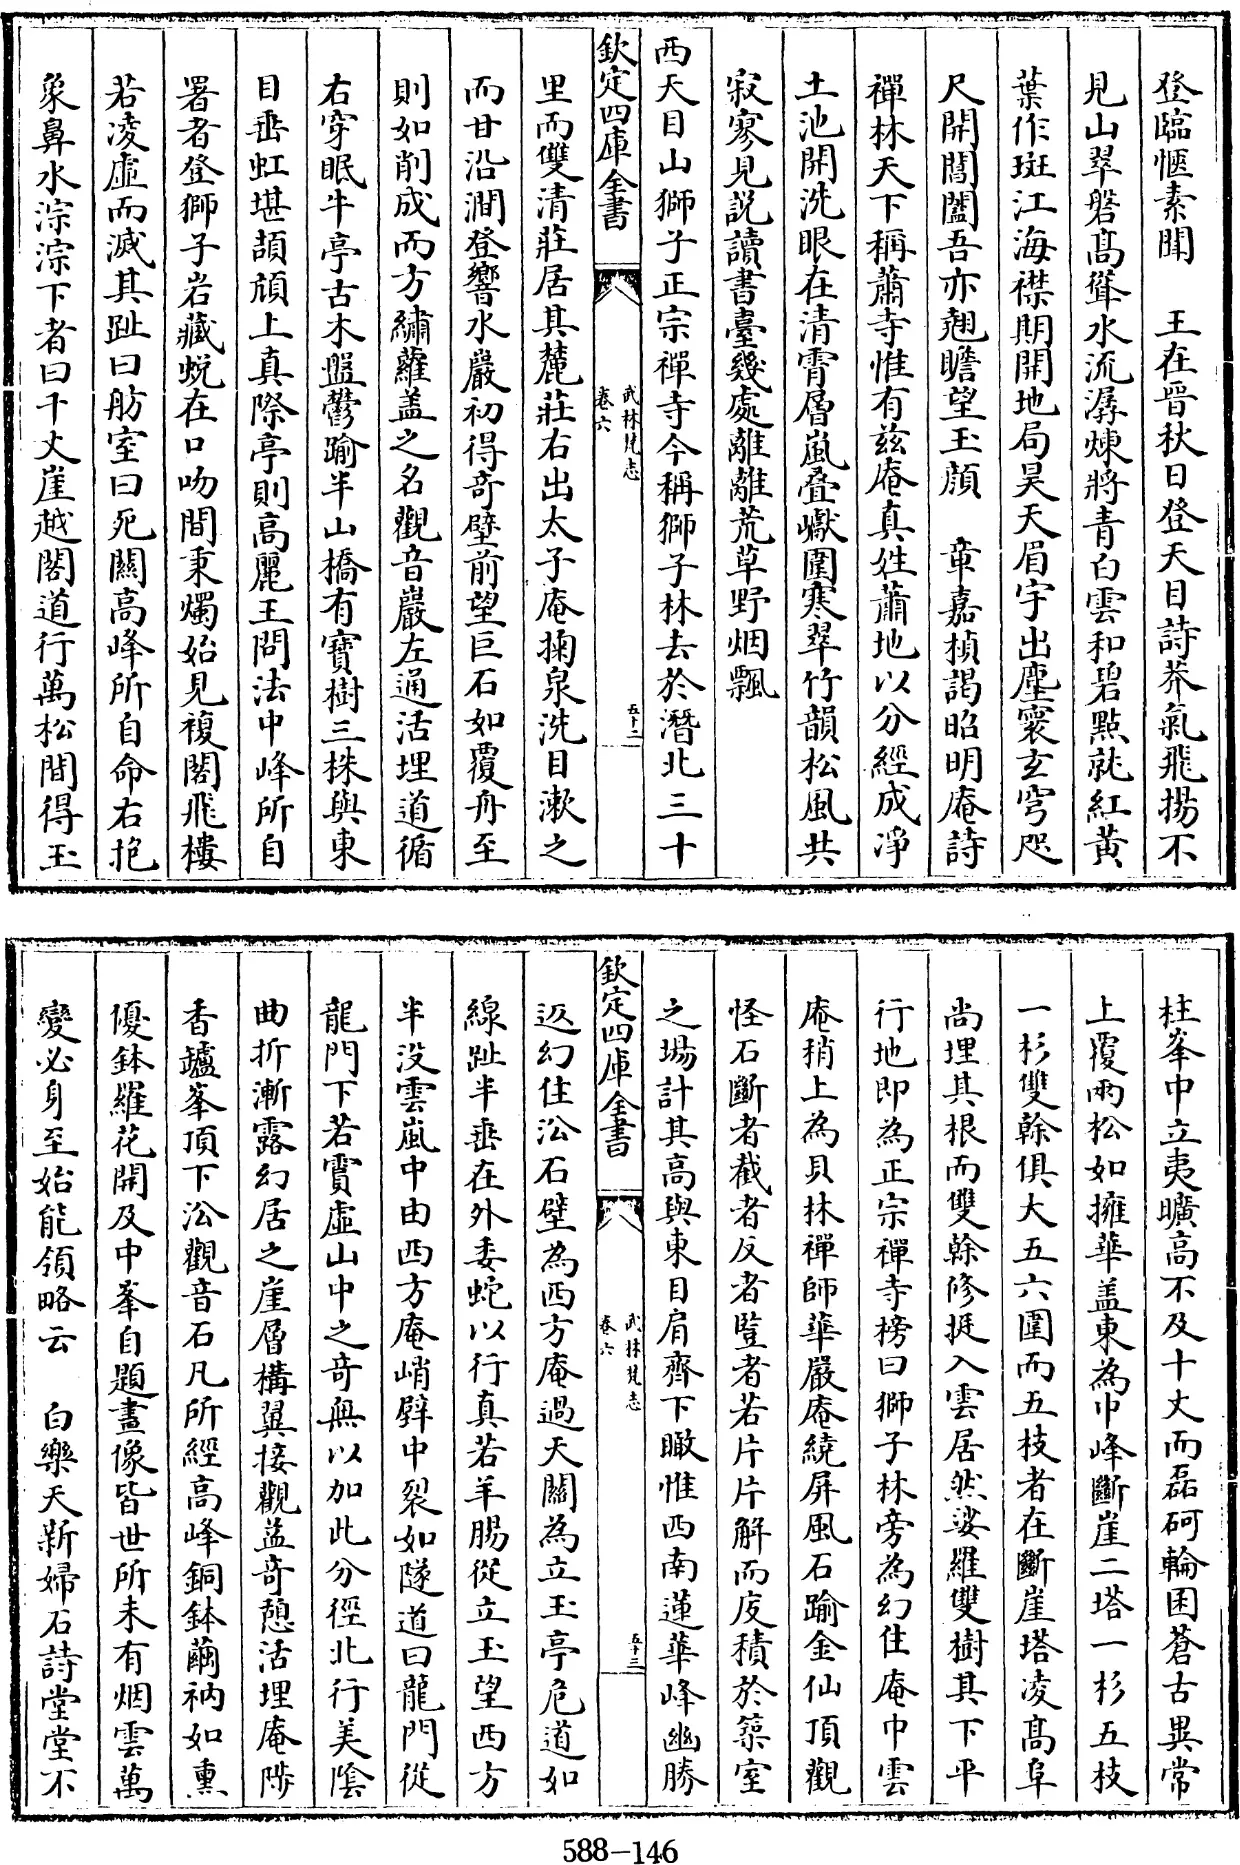 登臨愜素聞　王在晋秋日登天目詩莽氣飛揚不
見山翠磐髙聳水流潺煉將青白雲和碧㸃就紅黃
葉作斑江海襟期開地局昊天眉宇出塵寰玄穹咫
尺開閶闔吾亦翹瞻望玉顔　章嘉楨謁昭明庵詩
禪林天下稱蕭寺惟有兹庵真姓蕭地以分經成淨
土池開洗眼在清霄層嵐叠巘圍寒翠竹韻松風共
寂寥見説讀書臺幾處離離荒草野烟飄
西天目山獅子正宗禪寺今稱獅子林去於潛北三十
欽定四庫全書
武林梵志
卷六
五十二
里而雙清莊居其麓莊右出太子庵掬泉洗目漱之
而甘沿澗登響水巖初得奇壁前望巨石如覆舟至
則如削成而方繡蘿盖之名觀音巖左通活埋道循
右穿眠牛亭古木盤鬱踰半山橋有寶樹三株與東
目垂虹堪頡頏上真際亭則高麗王問法中峰所自
署者登獅子岩藏蜕在口吻間秉燭始見複閣飛樓
若凌虛而滅其趾曰舫室曰死關高峰所自命右挹
象鼻水淙淙下者曰千丈崖越閣道行萬松間得玉
柱峯中立夷曠高不及十丈而磊砢輪囷蒼古異常
上覆兩松如擁華盖東為中峰斷崖二塔一杉五枝
一杉雙榦俱大五六圍而五枝者在斷崖塔凌髙阜
尚埋其根而雙榦修挺入雲居然娑羅雙樹其下平
行地即為正宗禪寺榜曰獅子林旁為幻住庵中雲
庵稍上為貝林禪師華嚴庵繞屏風石踰金仙頂觀
怪石斷者截者反者豎者若片片解而庋積於築室
之場計其高與東目肩齊下瞰惟西南蓮華峰幽勝
欽定四庫全書
武林梵志
卷六
五十三
返幻住㳂石壁為西方庵過天關為立玉亭危道如
線趾半垂在外委蛇以行真若羊腸從立玉望西方
半没雲嵐中由西方庵峭壁中裂如隧道曰龍門從
龍門下若賈虛山中之奇無以加此分徑北行美陰
曲折漸露幻居之崖層構翼接觀益奇憩活埋庵陟
香罏峯頂下㳂觀音石凡所經高峰銅鉢繭衲如熏
優鉢羅花開及中峯自題畫像皆世所未有烟雲萬
變必身至始能領略云　白樂天新婦石詩堂堂不
588-146